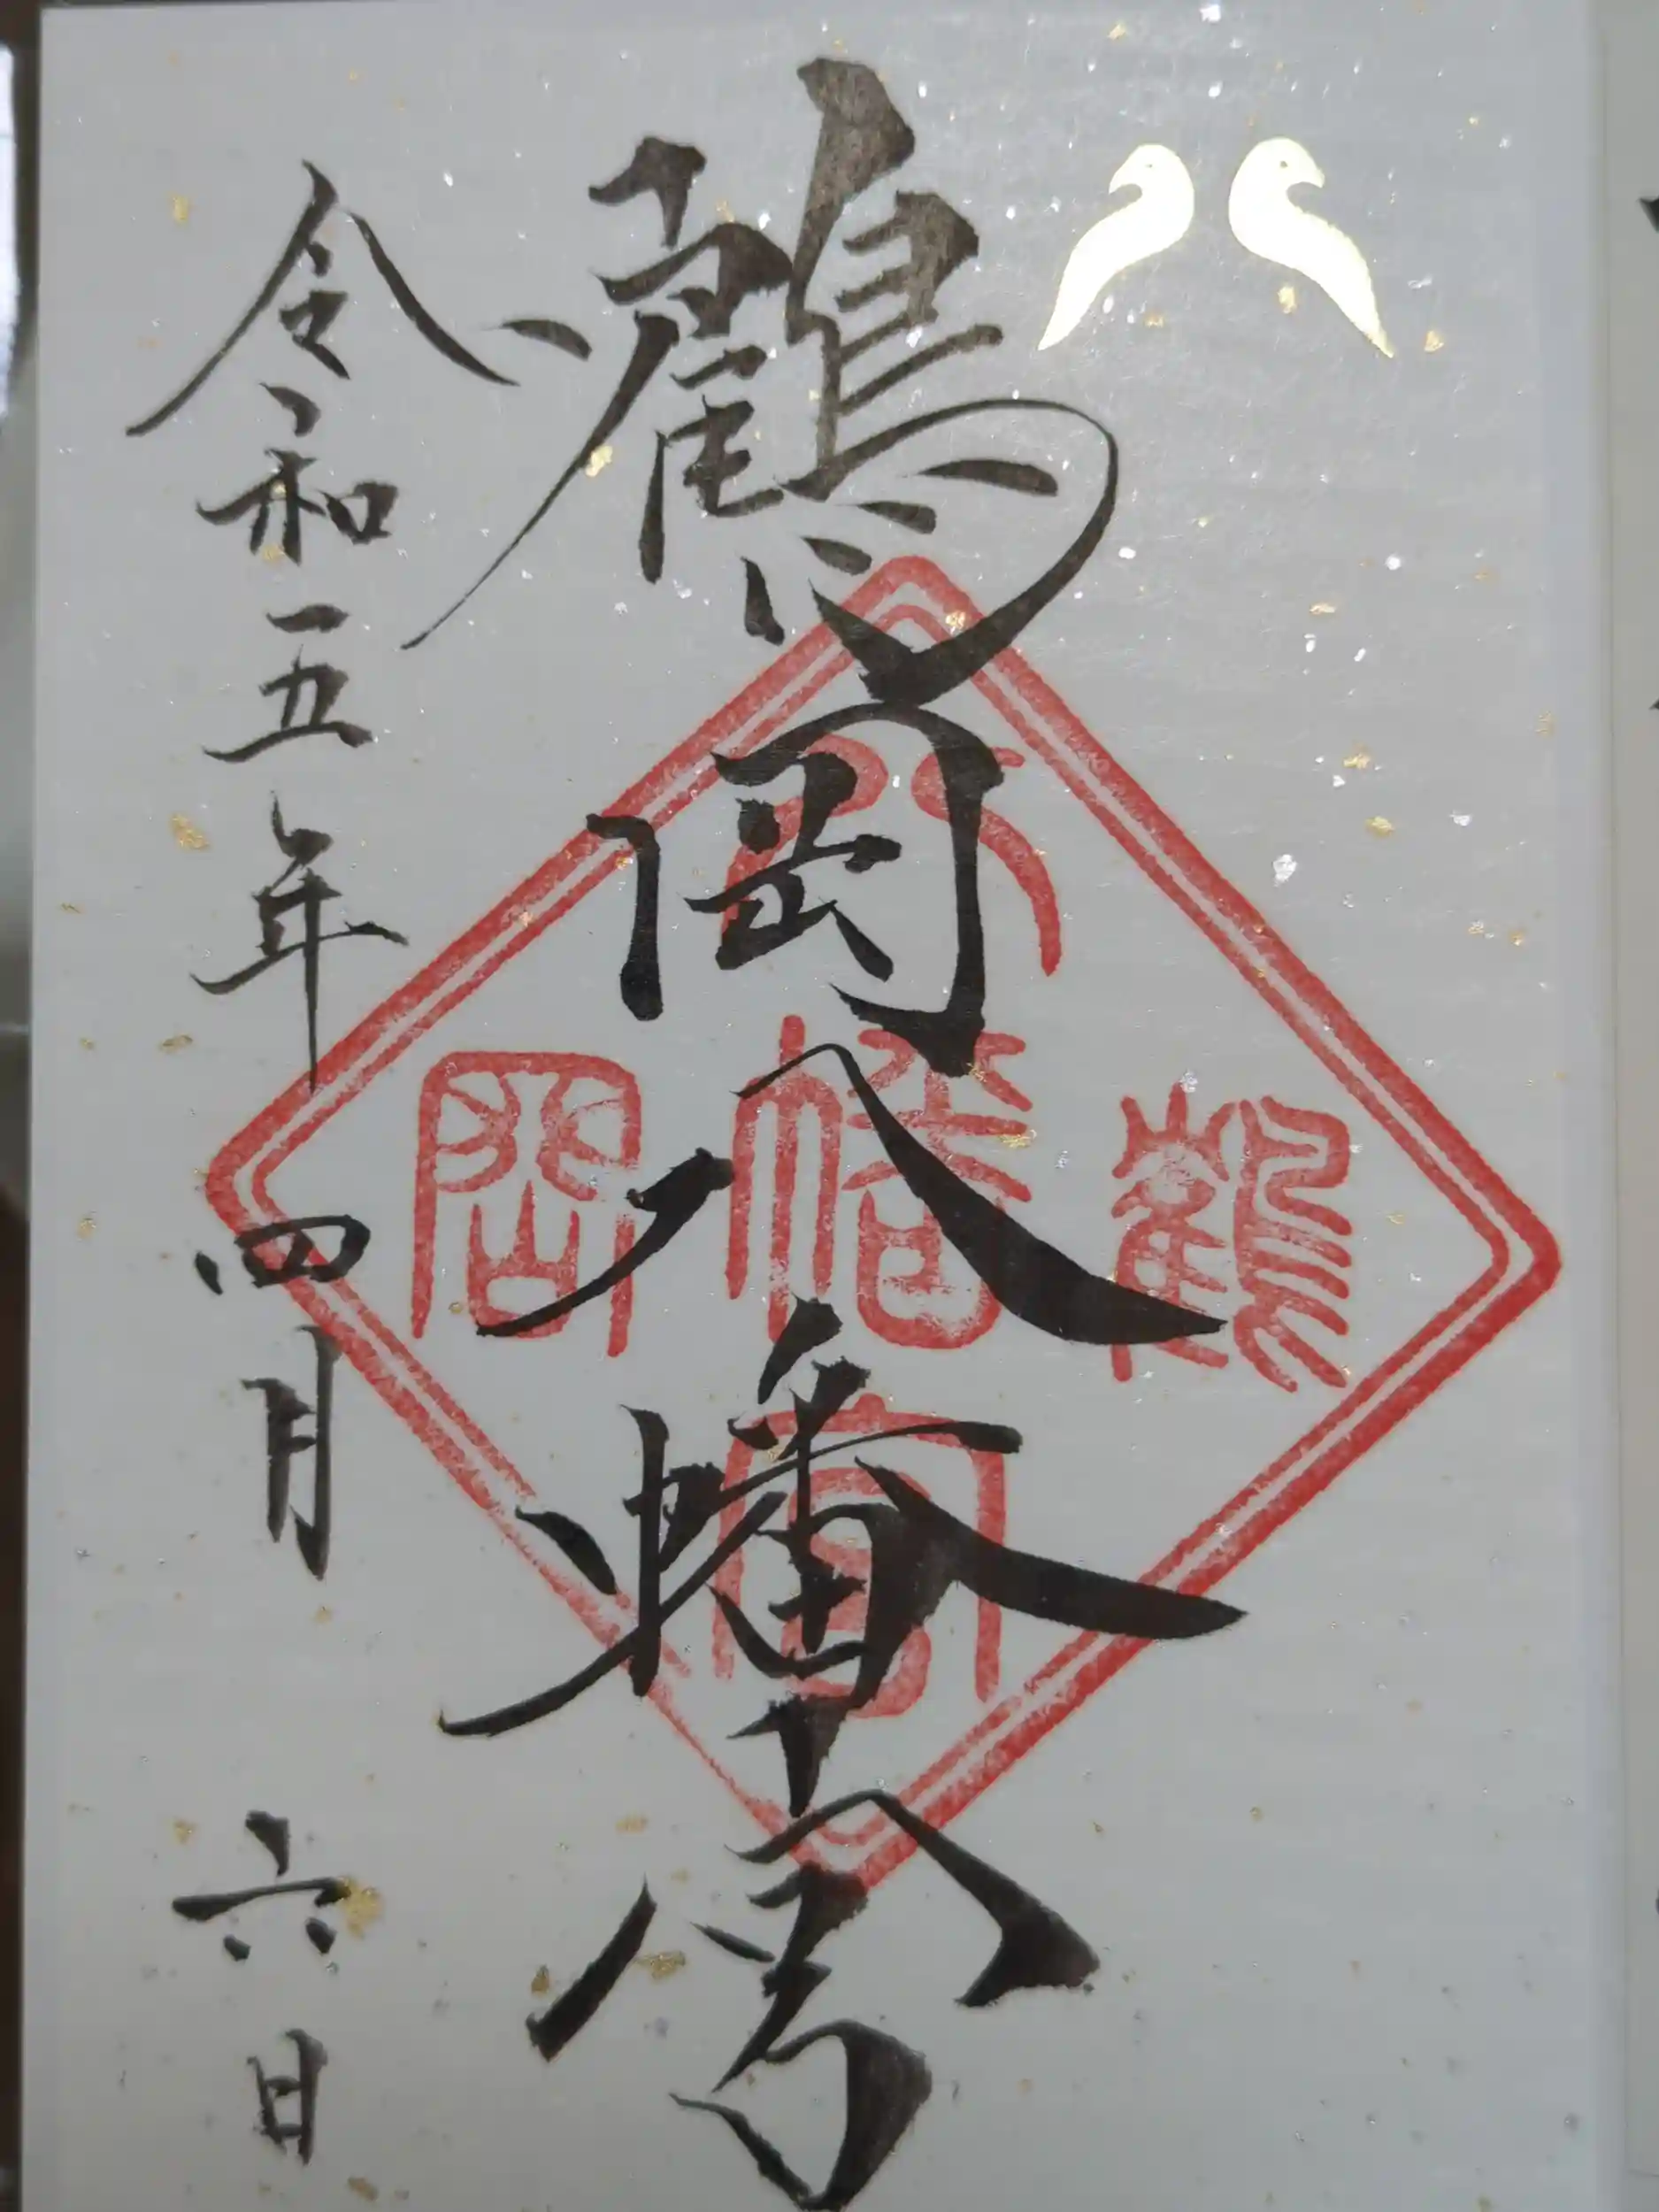 鶴岡八幡宮
令和五年四月六日
八
鶴幡岡
宮